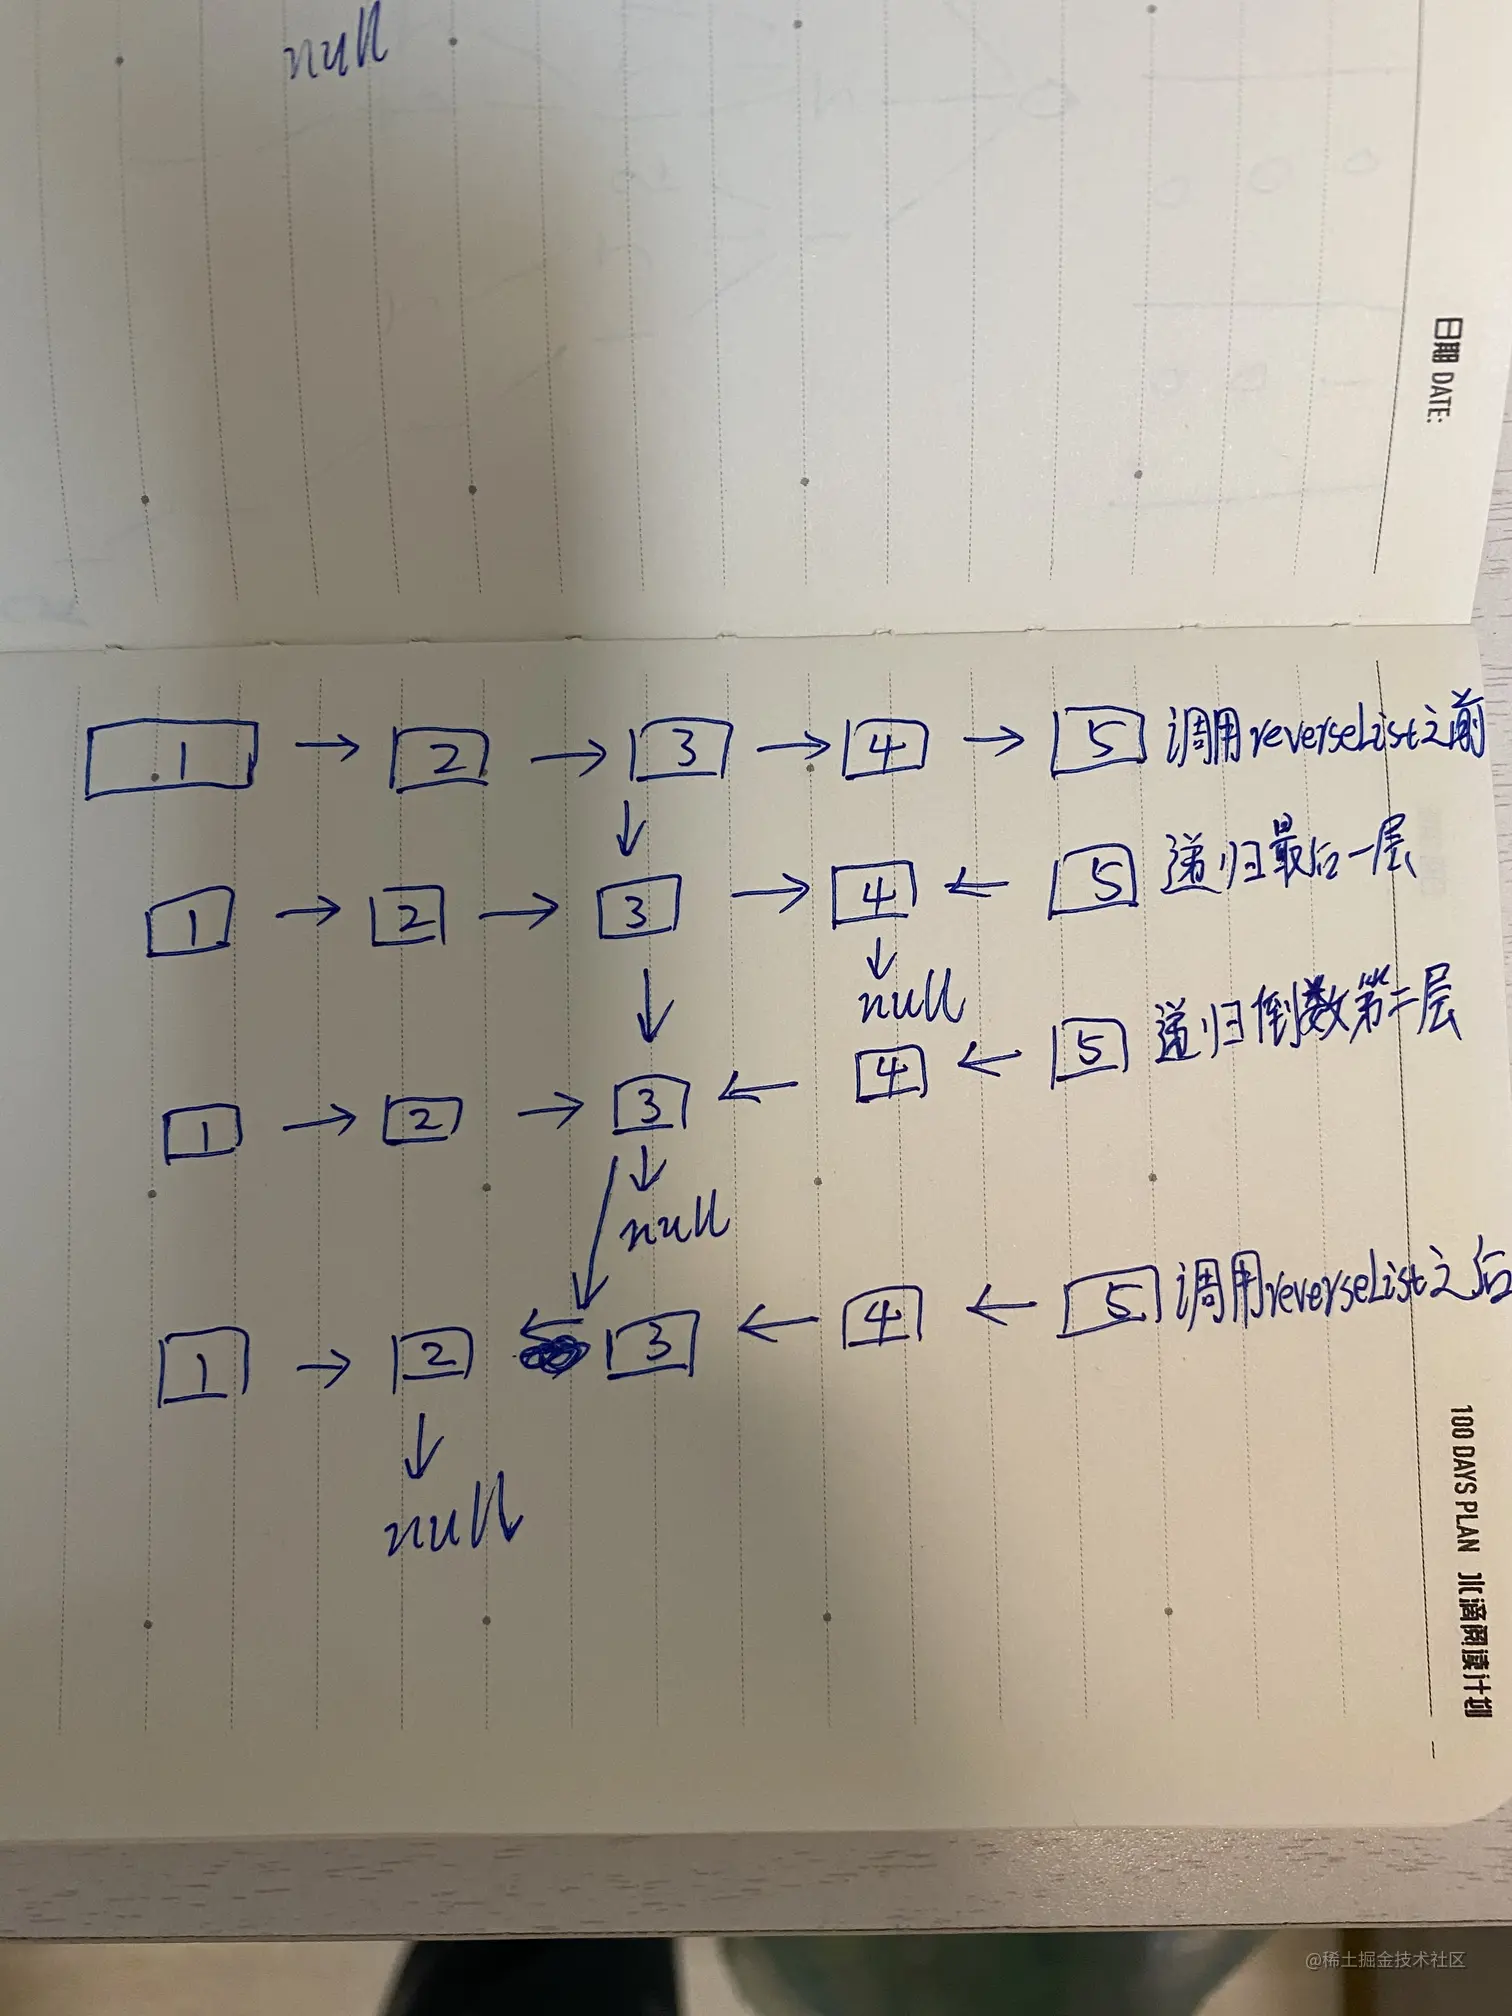 null
日期 DATE:
1 → 2 → 3 → 4 → 5 调用reverseList之前
↓
1 → 2 → 3 → 4 ← 5 递归最后一层
↓ ↓
null
1 → 2 → 3 ← 4 ← 5 递归倒数第二层
↓
null
1 → 2 ← 3 ← 4 ← 5 调用reverseList之后
↓
null
100 DAYS PLAN 水滴阅读计划
@稀土掘金技术社区